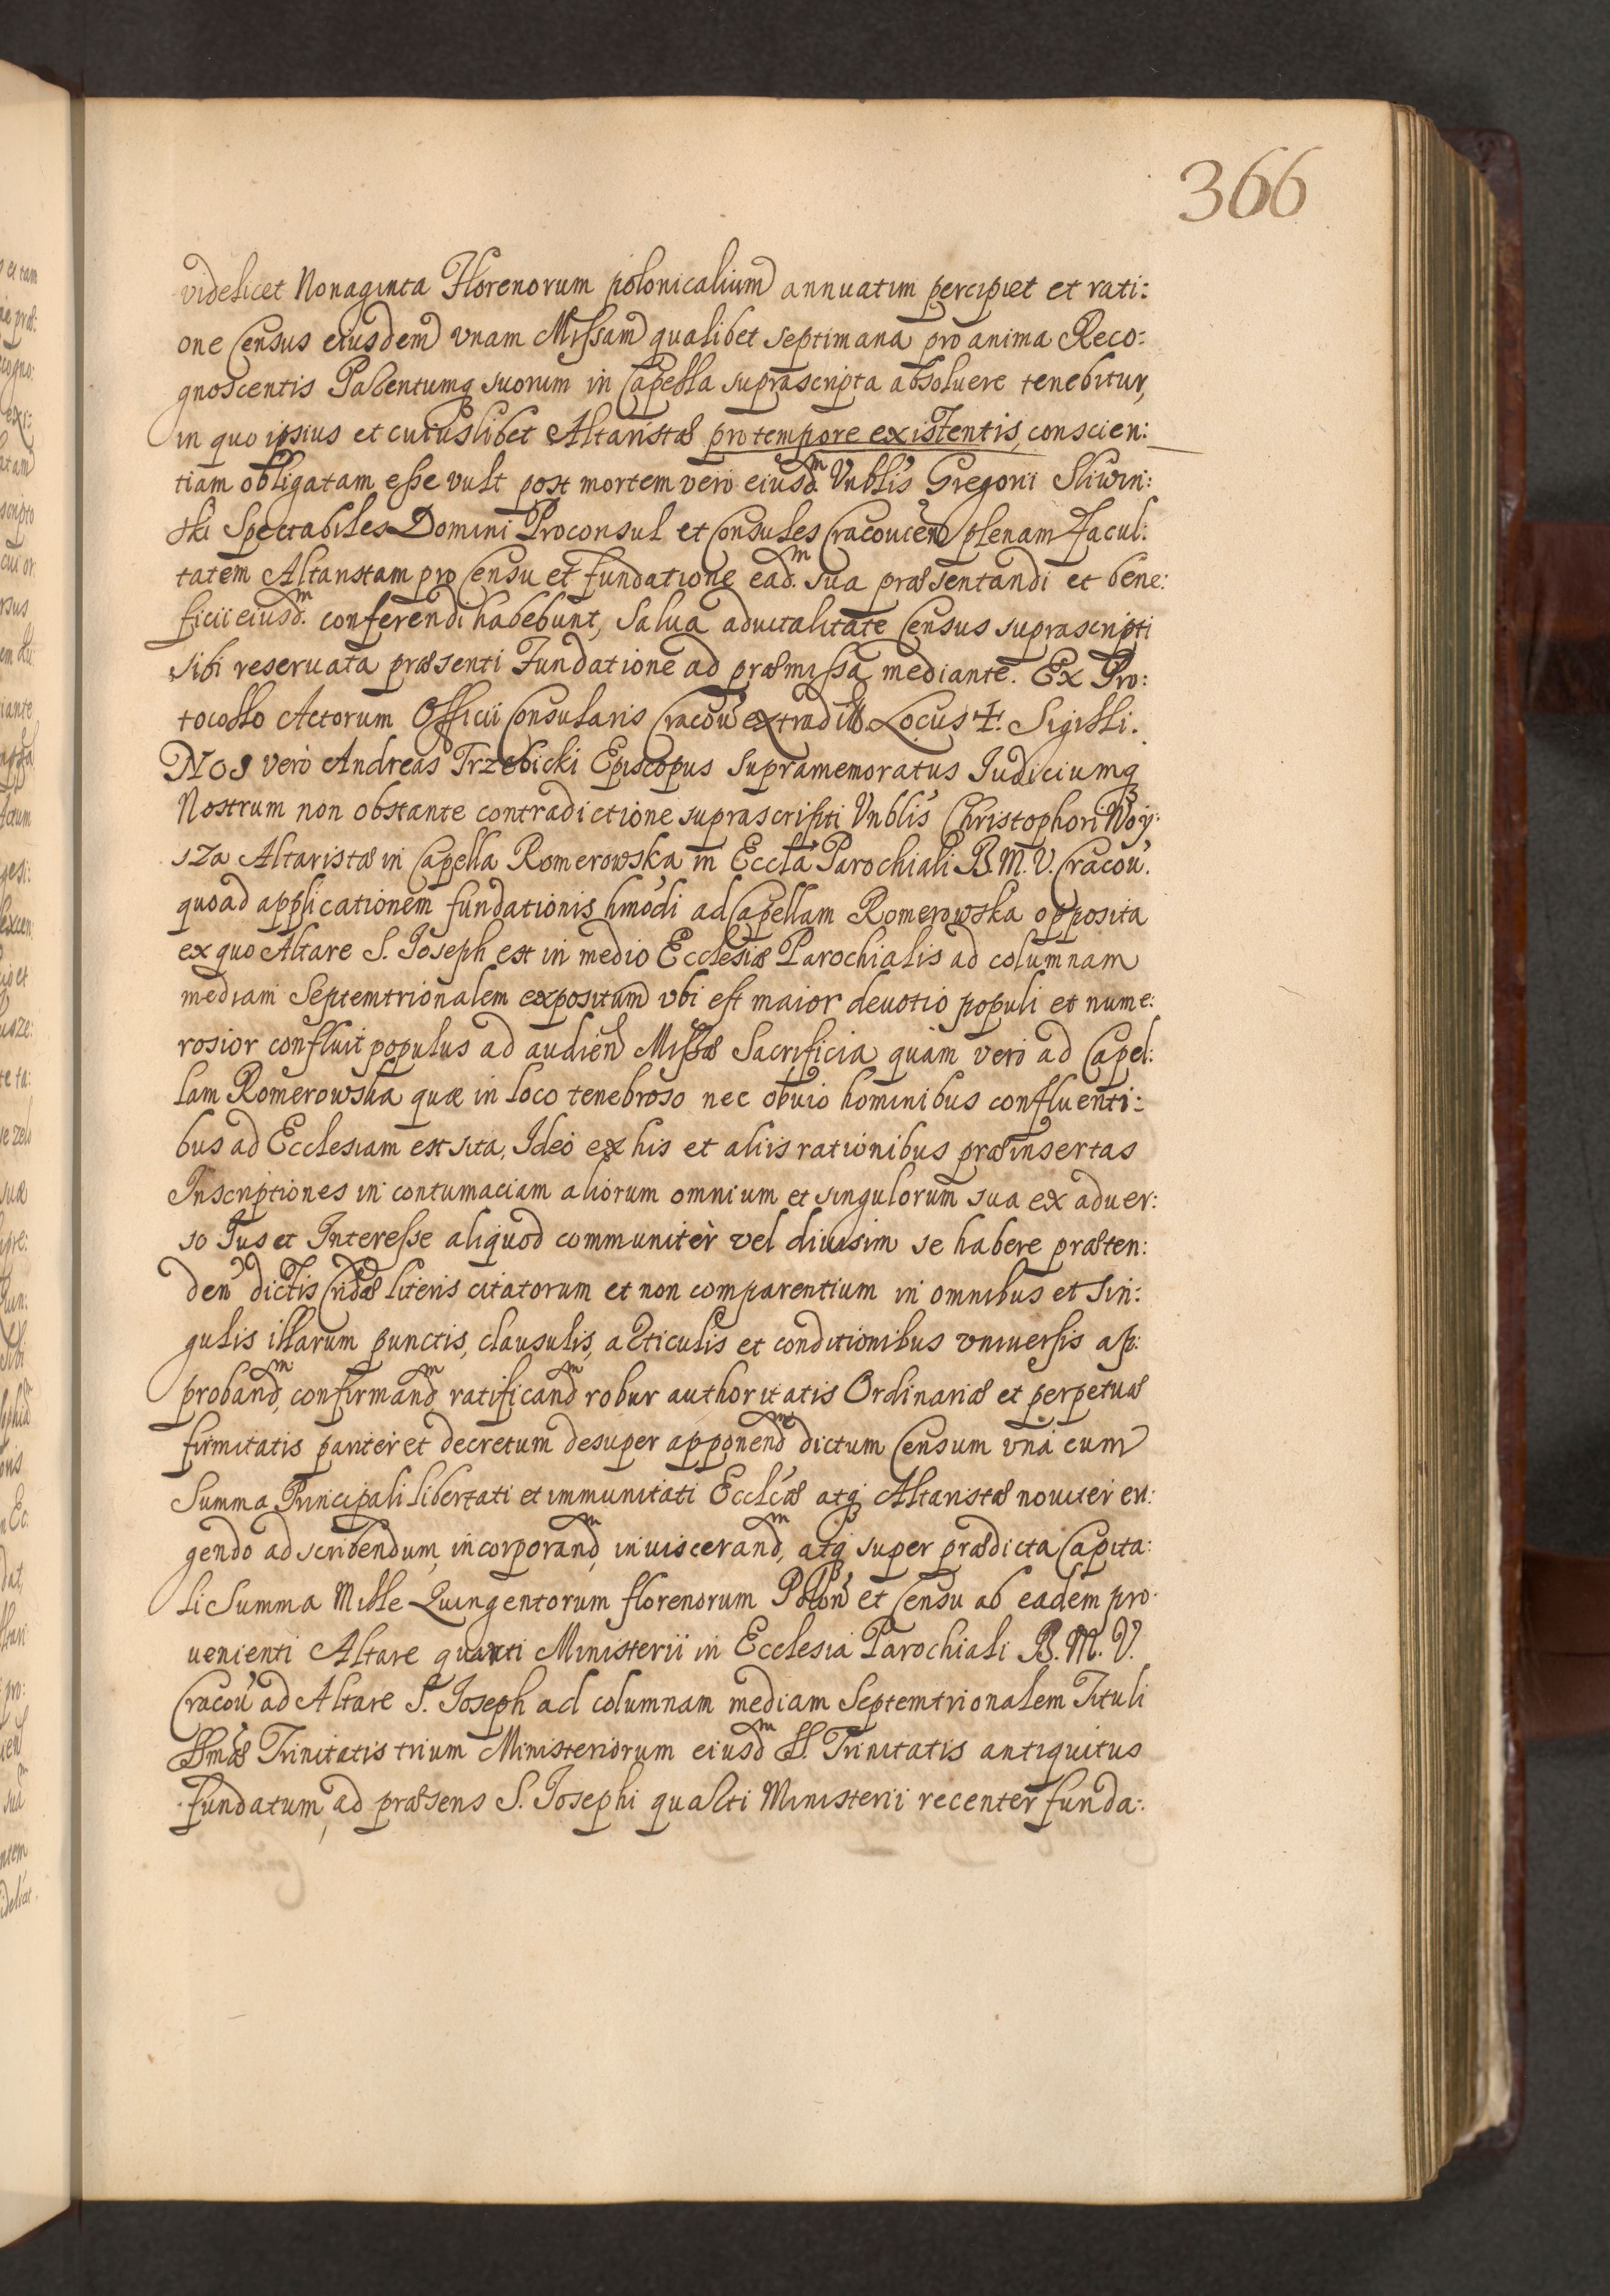 366
videlicet Nonaginta Florenorum polonicalium annuatim percipiet et rati:
one Census eiusdem vnam Missam qualibet septimana pro anima Reco:
gnoscentis Parentumq3 suorum in Capella suprascripta absoluere tenebitur,
in quo ipsius et cuiuslibet Altaristæ pro tempore existentis, conscien:
tiam obligatam esse vult post mortem verò eiusd.m Vnblis Gregorii Sliwin:
ski Spectabiles Domini Proconsul et Consules Cracouien plenam Facul:
tatem Altaristam pro Censu et fundatione ead.m sua præsentandi et bene:
ficii eiusd.m conferendi habebunt, Salua aduitalitate Census suprascripti
sibi reseruata præsenti Fundatione ad præmissa mediante. Ex Pro:
tocollo Actorum Officii Consularis Cracou extradit Locus +. Sigilli.
Nos verò Andreas Trzebicki Episcopus supramemoratus Iudiciumq3
Nostrum non obstante contradictione suprascripti Vnblis Christophori Woy:
sza Altaristæ in Capella Romerowska in Eccla Parochiali B. M. V. Cracou.
quoad applicationem fundationis hmodi ad Capellam Romerowska opposita
ex quo Altare S. Joseph est in medio Ecclesiæ Parochialis ad columnam
mediam Septemtrionalem expositum vbi est maior deuotio populi et nume:
rosior confluit populus ad audien Missæ Sacrificia quàm verò ad Capel:
lam Romerowska quæ in loco tenebroso nec obuio hominibus confluenti:
bus ad Ecclesiam est sita, Ideò ex his et aliis rationibus præinsertas
Inscriptiones in contumaciam aliorum omnium et singulorum sua ex aduer:
so Ius et Interesse aliquod communitèr vel diuisim se habere præten:
den dictis Cridæ literis citatorum et non comparentium in omnibus et sin:
gulis illarum punctis, clausulis, articulis et conditionibus vniuersis ap:
proband.m, confirmand.m, ratificand.m robur authoritatis Ordinariæ et perpetuæ
firmitatis paritèr et decretum desuper apponend.m dictum Censum vnà cum
Summa Principali libertati et immunitati Eccleæ atq3 Altaristæ nouitèr eri:
gendo adscribendum, incorporand.m, inuiscerand.m, atq3 super prædicta Capita:
li Summa Mille Quingentorum florenorum Polon et Censu ab eadem pro:
uenienti Altare quarti Ministerii in Ecclesia Parochiali B. M. V.
Cracou ad Altare S. Joseph ad columnam mediam Septemtrionalem Tituli
SSmæ Trinitatis trium Ministeriorum eiusd.m SS. Trinitatis antiquitus
fundatum, ad præsens S. Josephi quarti Ministerii recentèr funda: